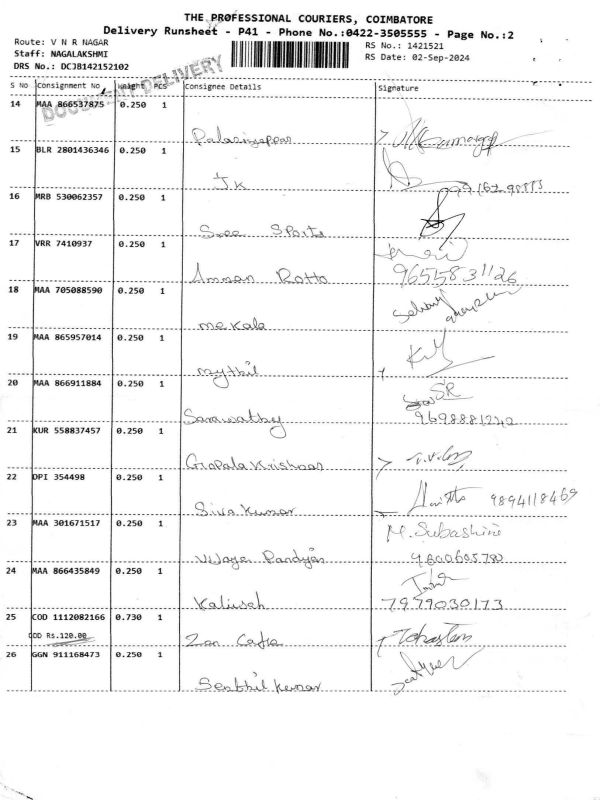 THE PROFESSIONAL COURIERS, COIMBATORE
Delivery Runsheet - P41 - Phone No.:0422-3505555 - Page No.:2
Route: V N R NAGAR
Staff: NAGALAKSHMI
DRS No.: DCJB142152102
RS No.: 1421521
RS Date: 02-Sep-2024
DOCUMENT DELIVERY
S No Consignment No Weight PCS Consignee Details Signature
14 MAA 866537875 0.250 1
Palaniyappan
15 BLR 2801436346 0.250 1
J.K
16 MRB 530062357 0.250 1
Sree Sports
17 VRR 7410937 0.250 1
Amman Rotto 9655831126
18 MAA 705088590 0.250 1
mekala
19 MAA 865957014 0.250 1
mythil
20 MAA 866911884 0.250 1
SR
Sarawathy 9698881242
21 KUR 558837457 0.250 1
Gopala Krishnan
22 DPI 354498 0.250 1
Siva Kumar 9894118469
23 MAA 301671517 0.250 1 M. Subashini
Vijaya Pandyan 9600605780
24 MAA 866435849 0.250 1
7979030173
25 COD 1112082166 0.730 1
COD Rs.120.00 Zen Cafe
26 GGN 911168473 0.250 1
Senthil kumar